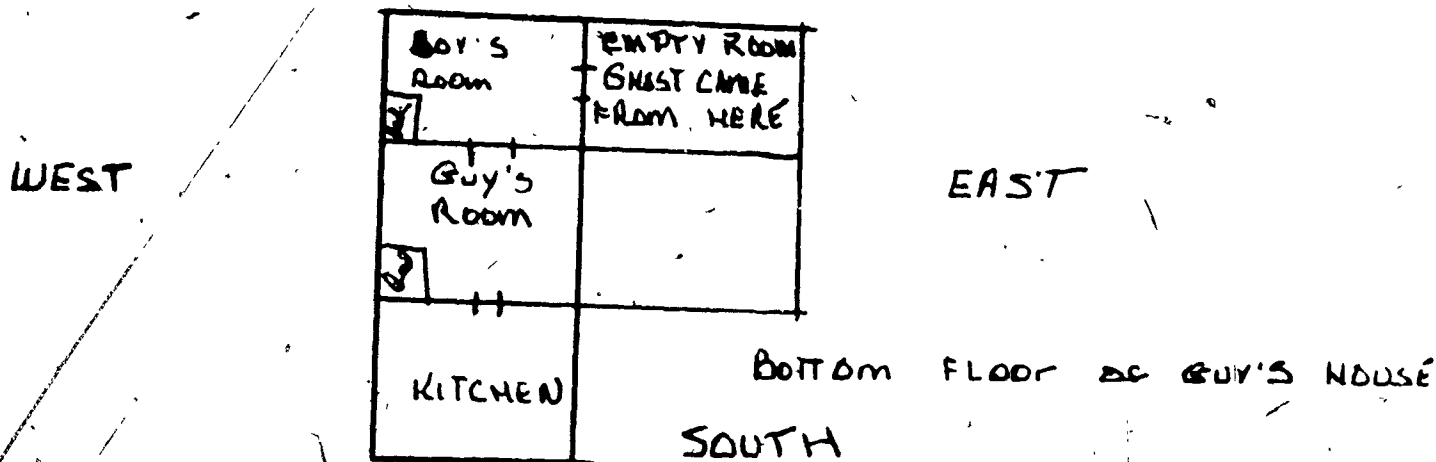 BOY'S
ROOM
EMPTY ROOM
GHOST CAME
FROM HERE
WEST
GUY'S
ROOM
EAST
KITCHEN
BOTTOM FLOOr OF GUY'S HOUSE
SOUTH